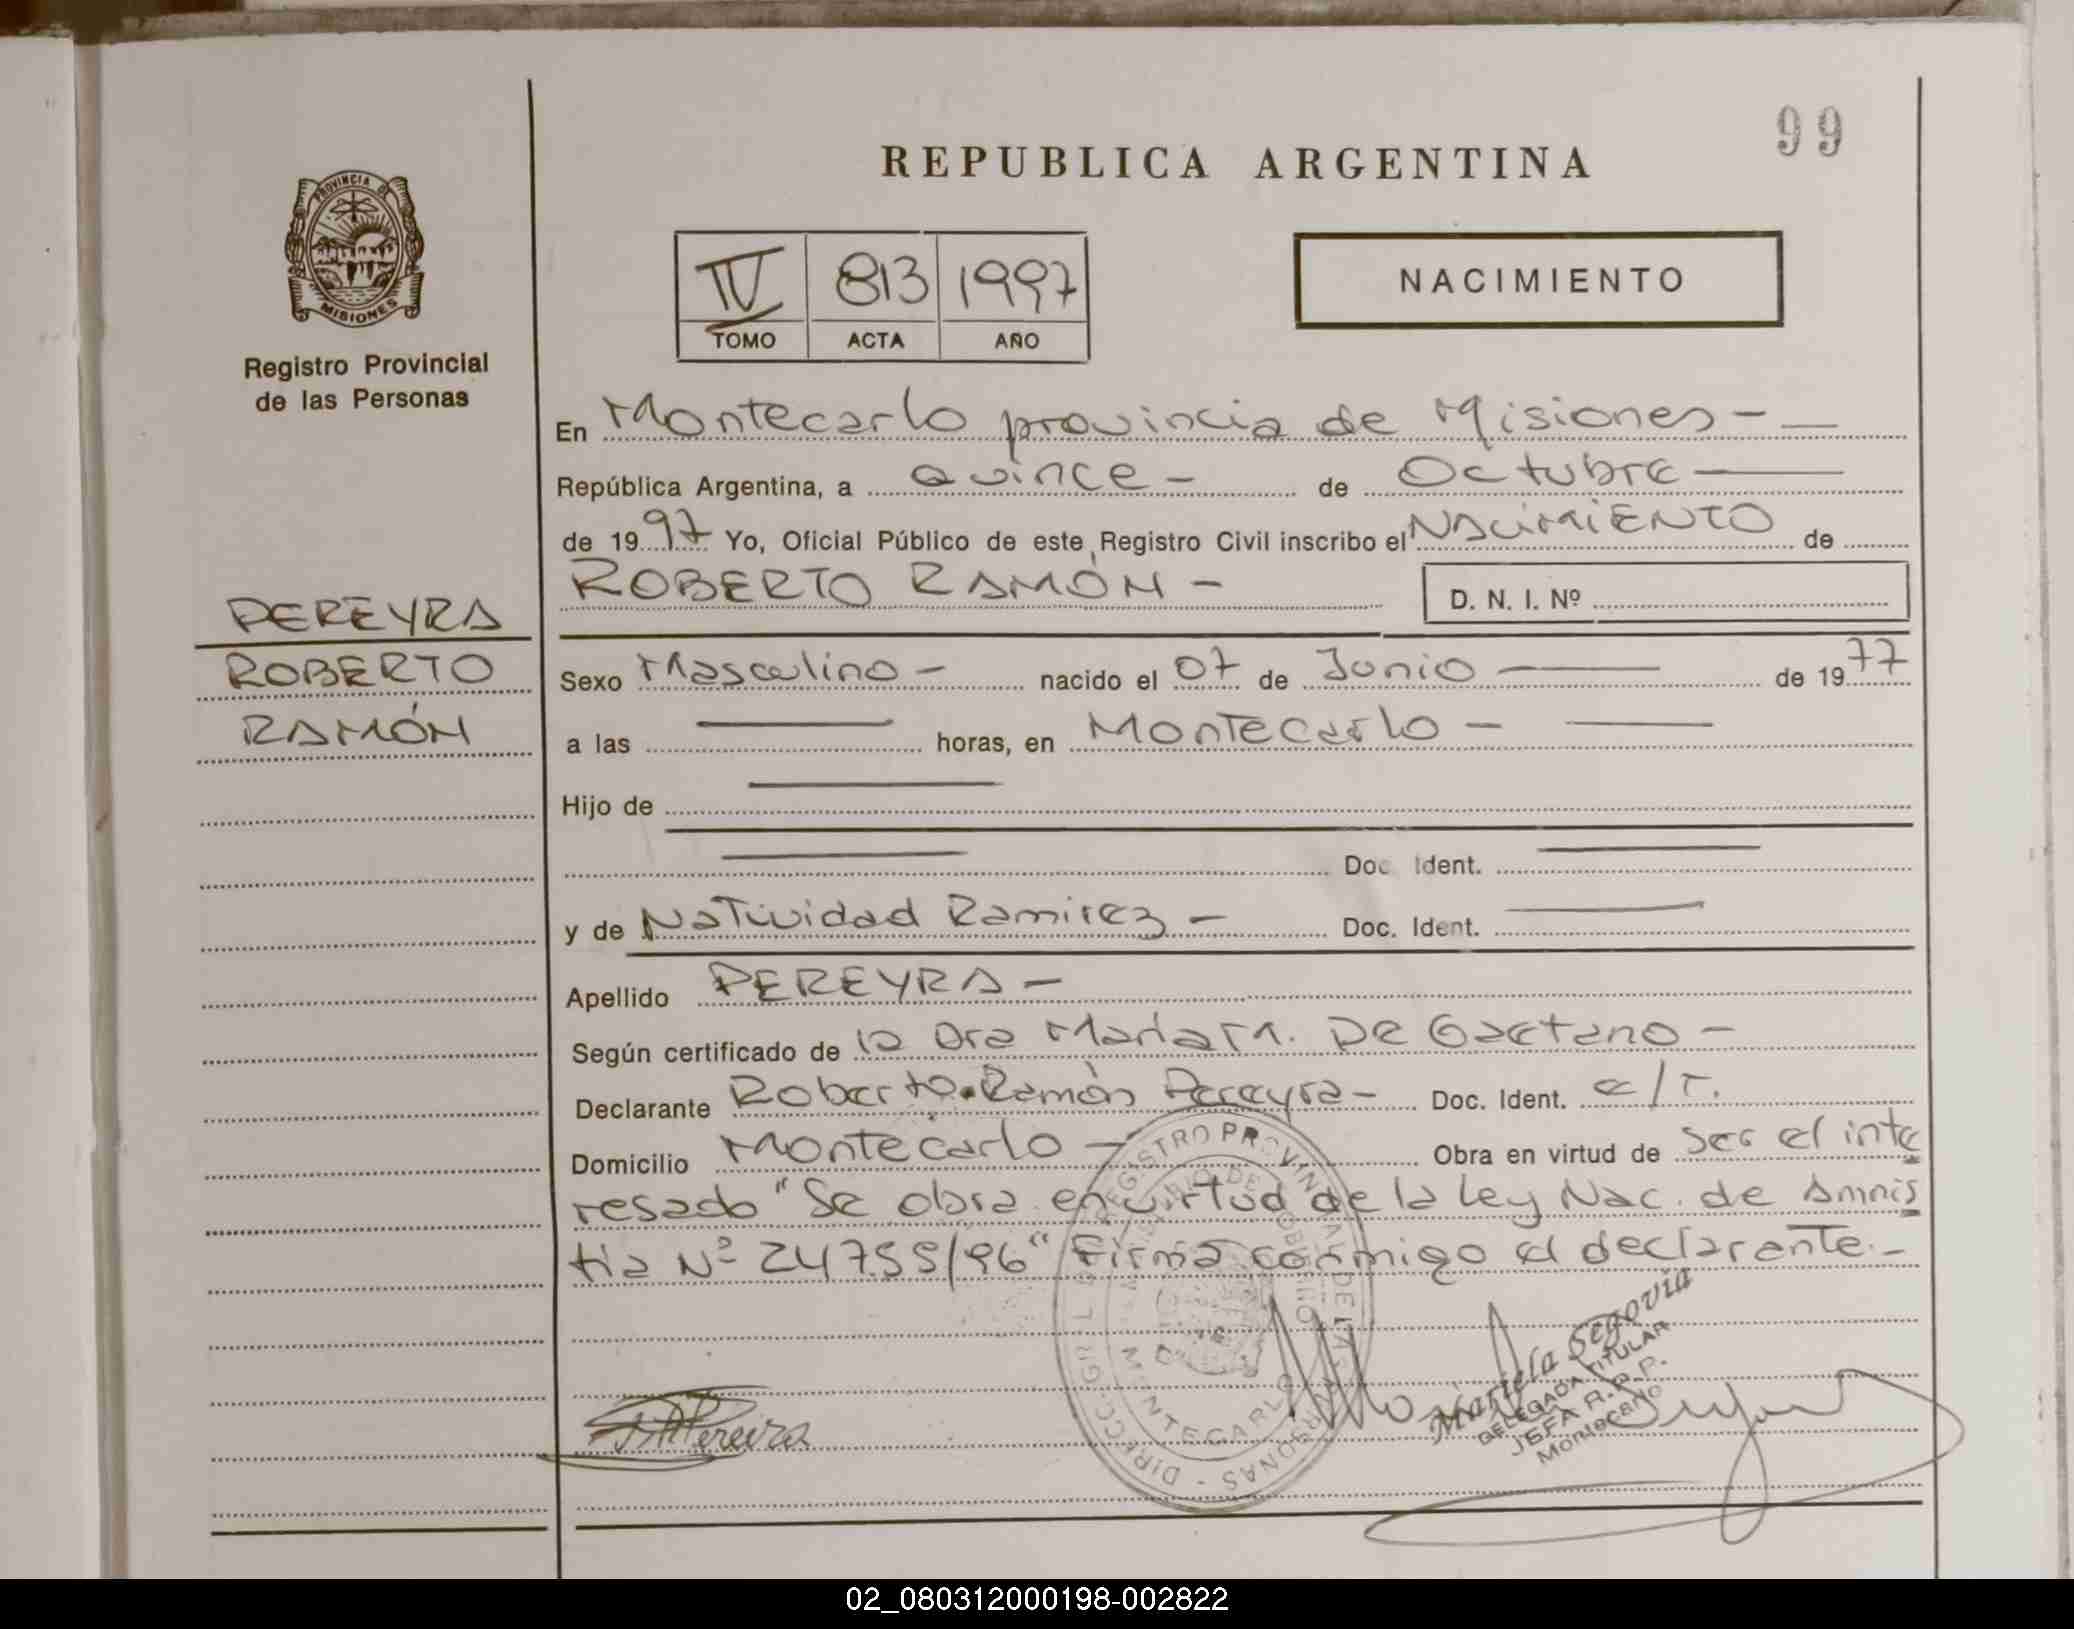 99
REPUBLICA ARGENTINA
PROVINCIA DE
MISIONES
IV 813 1997
TOMO ACTA AÑO
NACIMIENTO
Registro Provincial
de las Personas
En Montecarlo provincia de Misiones -
República Argentina, a Quince - de Octubre
de 1997 Yo, Oficial Público de este Registro Civil inscribo el NACIMIENTO de
ROBERTO RAMÓN - D. N. I. Nº
PEREYRA
ROBERTO
RAMÓN
Sexo Masculino - nacido el 07 de Junio de 1977
a las horas, en Montecarlo -
Hijo de
Doc. Ident.
y de Natividad Ramirez - Doc. Ident.
Apellido PEREYRA -
Según certificado de la Dra Maria M. De Gaetano -
Declarante Roberto Ramón Pereyra - Doc. Ident. e/T.
Domicilio Montecarlo - Obra en virtud de Ser el inte
resado "Se obra en virtud de la Ley Nac. de Amnis
tia Nº 24755/96" Firma conmigo el declarante. -
REGISTRO PROVINCIAL DE LAS PERSONAS - DIRECC. GRAL
MINISTERIO DE GOBIERNO
MONTECARLO
Pereira
Mariela Segovia
DELEGADA TITULAR
JEFA R.P.P.
Montecarlo
02_080312000198-002822